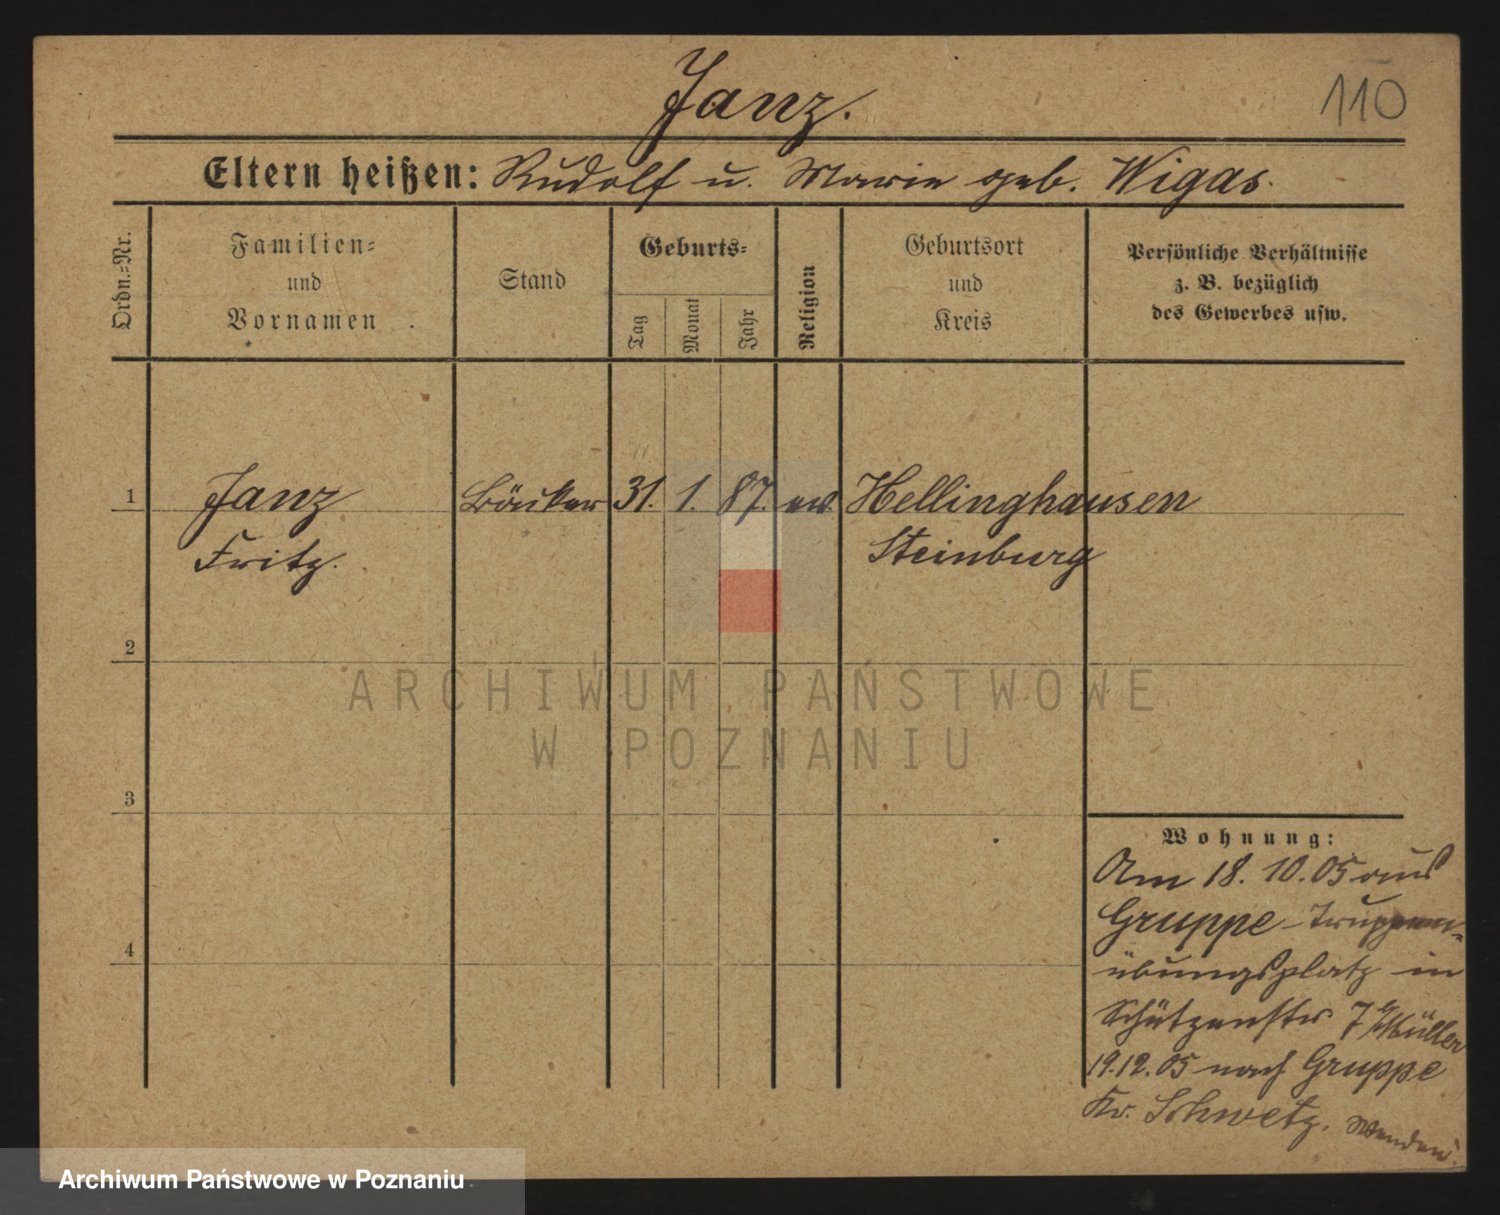 Janz.
110
Eltern heißen: Rudolf u. Marie geb. Wigas.
Ordn.-Nr.
Familien-
und
Vornamen
Stand
Geburts-
Tag
Monat
Jahr
Religion
Geburtsort
und
Kreis
Persönliche Verhältnisse
z. B. bezüglich
des Gewerbes usw.
1
Janz
Fritz.
31. 1. 87. ev.
Hellinghausen
Steinburg
2
3
4
ARCHIWUM PAŃSTWOWE
W POZNANIU
Wohnung:
Am 18. 10. 05 aus
Gruppe - Truppen-
übungsplatz in
Schützenstr 7 b/Müller
19.12.05 nach Gruppe
Kr. Schwetz. Wenden.
Archiwum Państwowe w Poznaniu